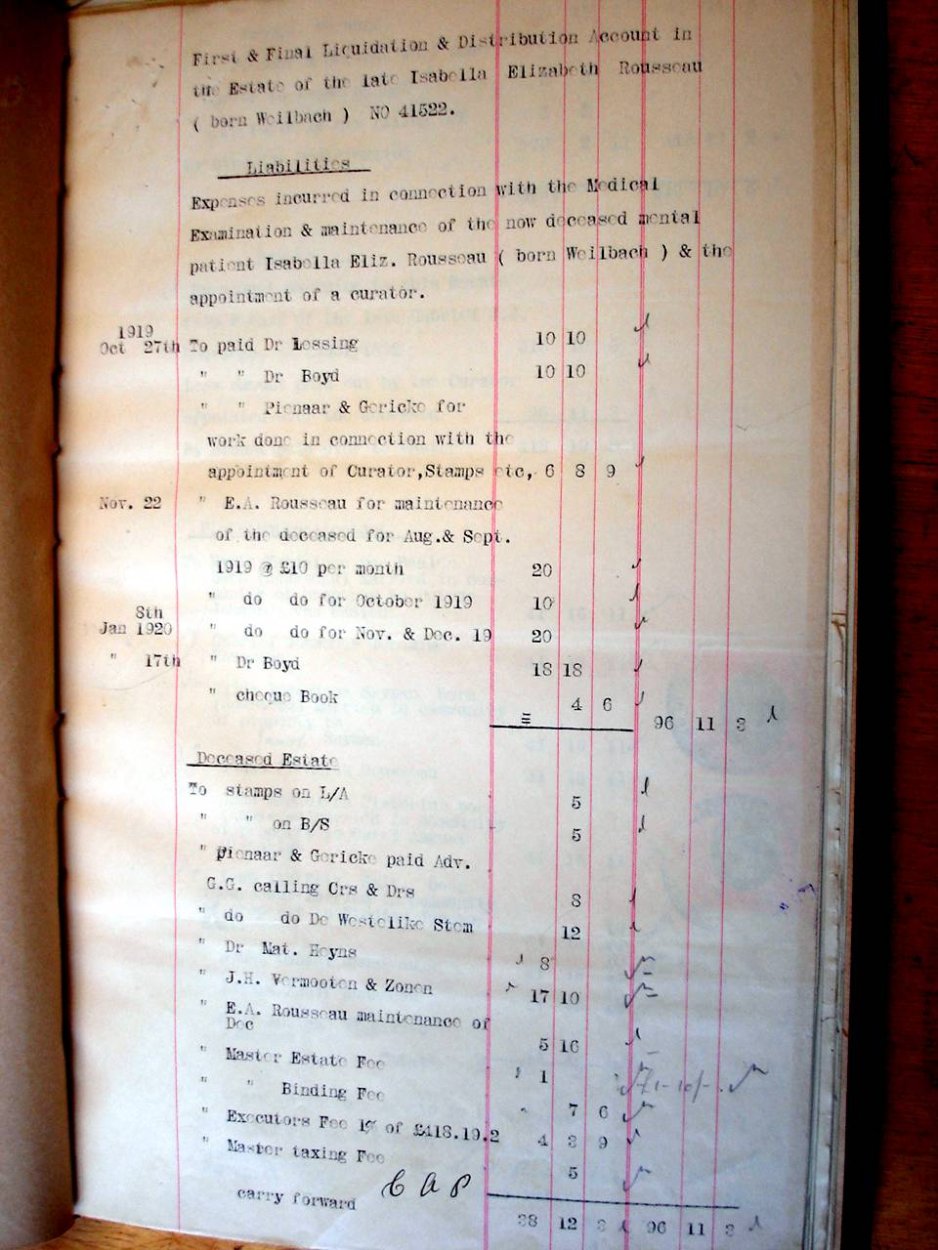 First & Final Liquidation & Distribution Account in
the Estate of the late Isabella Elizabeth Rousseau
( born Weilbach ) NO 41522.
Liabilities
Expenses incurred in connection with the Medical
Examination & maintenance of the now deceased mental
patient Isabella Eliz. Rousseau ( born Weilbach ) & the
appointment of a curator.
1919
Oct 27th To paid Dr Lessing 10 10
" " Dr Boyd 10 10
" " Pienaar & Gericke for
work done in connection with the
appointment of Curator,Stamps etc, 6 8 9
Nov. 22 " E.A. Rousseau for maintenance
of the deceased for Aug.& Sept.
1919 @ £10 per month 20
" do do for October 1919 10
8th
Jan 1920 " do do for Nov. & Dec. 19 20
" 17th " Dr Boyd 18 18
" cheque Book 4 6
96 11 3
Deceased Estate
To stamps on L/A 5
" " on B/S 5
" Pienaar & Gericke paid Adv.
G.G. calling Crs & Drs 8
" do do De Westelike Stem 12
" Dr Mat. Heyns 8
" J.H. Vermooten & Zonen 17 10
" E.A. Rousseau maintenance of
Dec 5 16
" Master Estate Fee 1
" " Binding Fee 7 6
" Executors Fee 1% of £418.19.2 4 3 9
" Master taxing Fee 5
carry forward 38 12 3 96 11 3